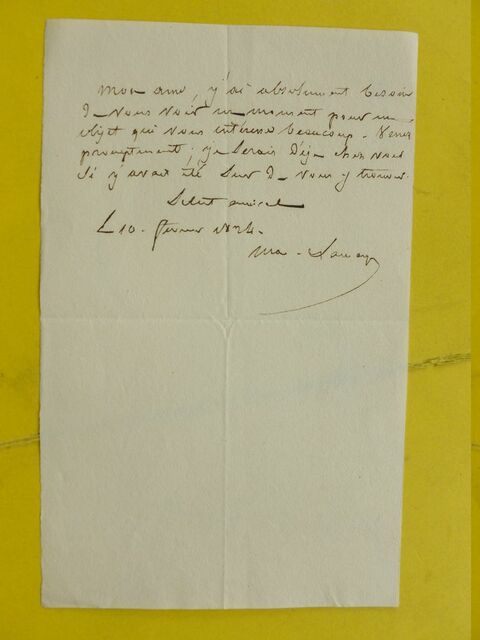 mon ami, j'ai absolument besoin
de vous voir un moment pour un
objet qui vous intéresse beaucoup. Venez
promptement; je serais déja chez vous
si j'avais été sur de vous y trouver.
Salut amical
Le 10. février 1824.